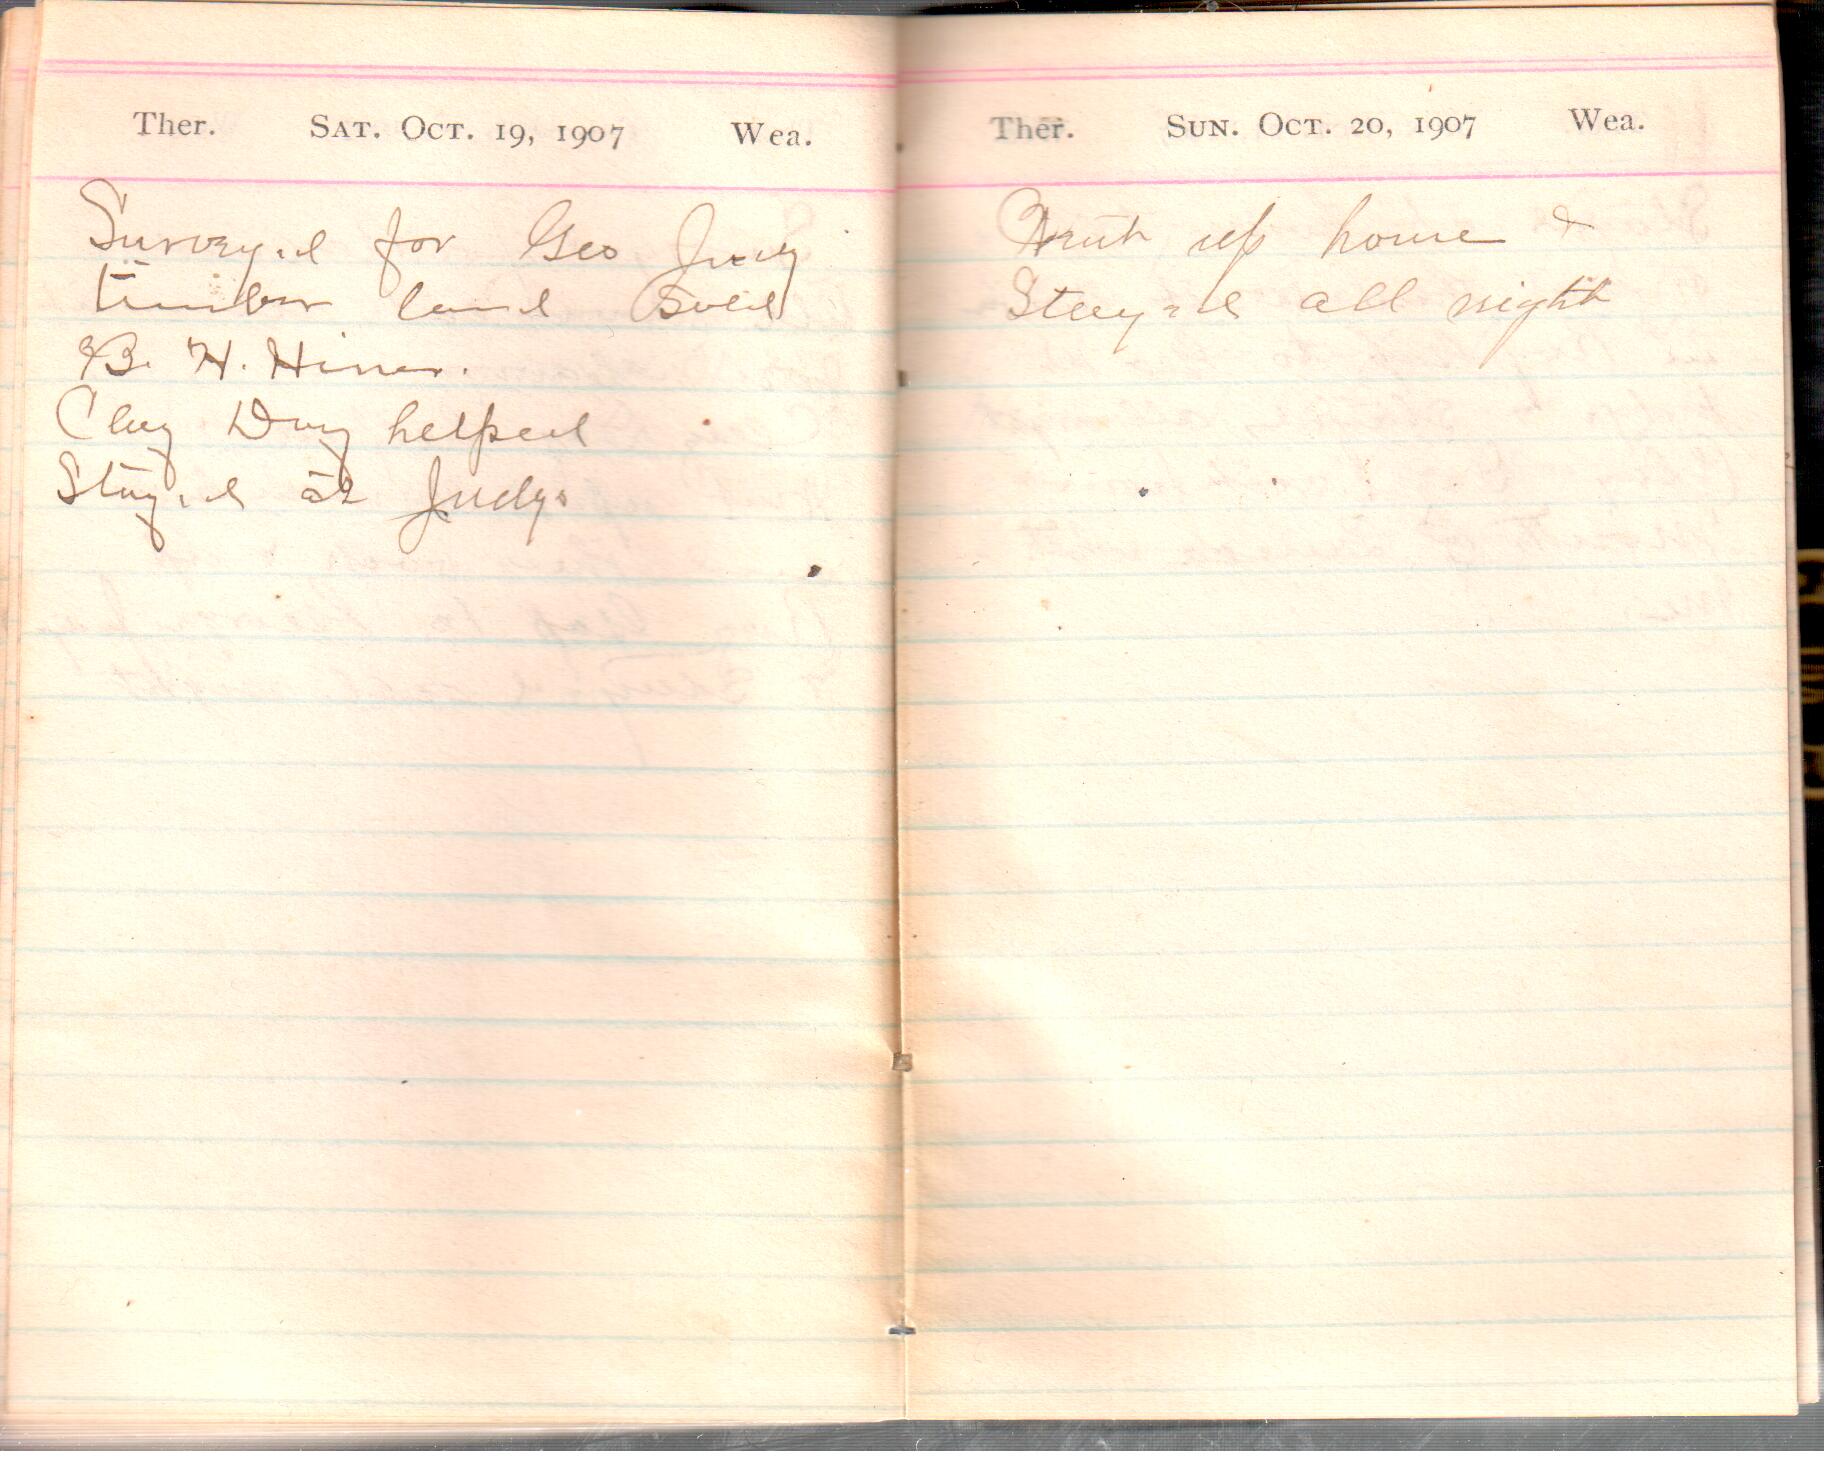 Ther. SAT. OCT. 19, 1907 Wea.
Surveyed for Geo Judy
timber land sold
B. H. Hiner.
Clay Day helped
Stayed at Judys
Ther. SUN. OCT. 20, 1907 Wea.
Went up home &
Stayed all night